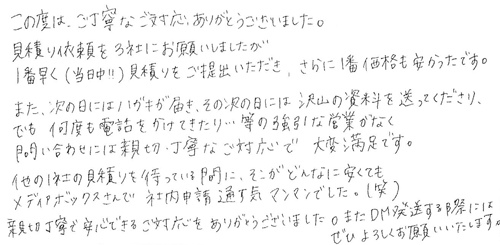 この度は、ご丁寧なご対応、ありがとうございました。
見積り依頼を3社にお願いしましたが
1番早く(当日中!!)見積りをご提出いただき、さらに1番価格も安かったです。
また、次の日にはハガキが届き、その次の日には沢山の資料を送ってくださり、
でも何度も電話をかけてきたり…等の強引な営業がなく
問い合わせには親切・丁寧なご対応で大変満足です。
他の1社の見積りを待っている間に、そこがどんなに安くても
メディアボックスさんで社内申請通す気マンマンでした。(笑)
親切丁寧で安心できるご対応をありがとうございました。またDM発送する際には
ぜひよろしくお願いいたします。